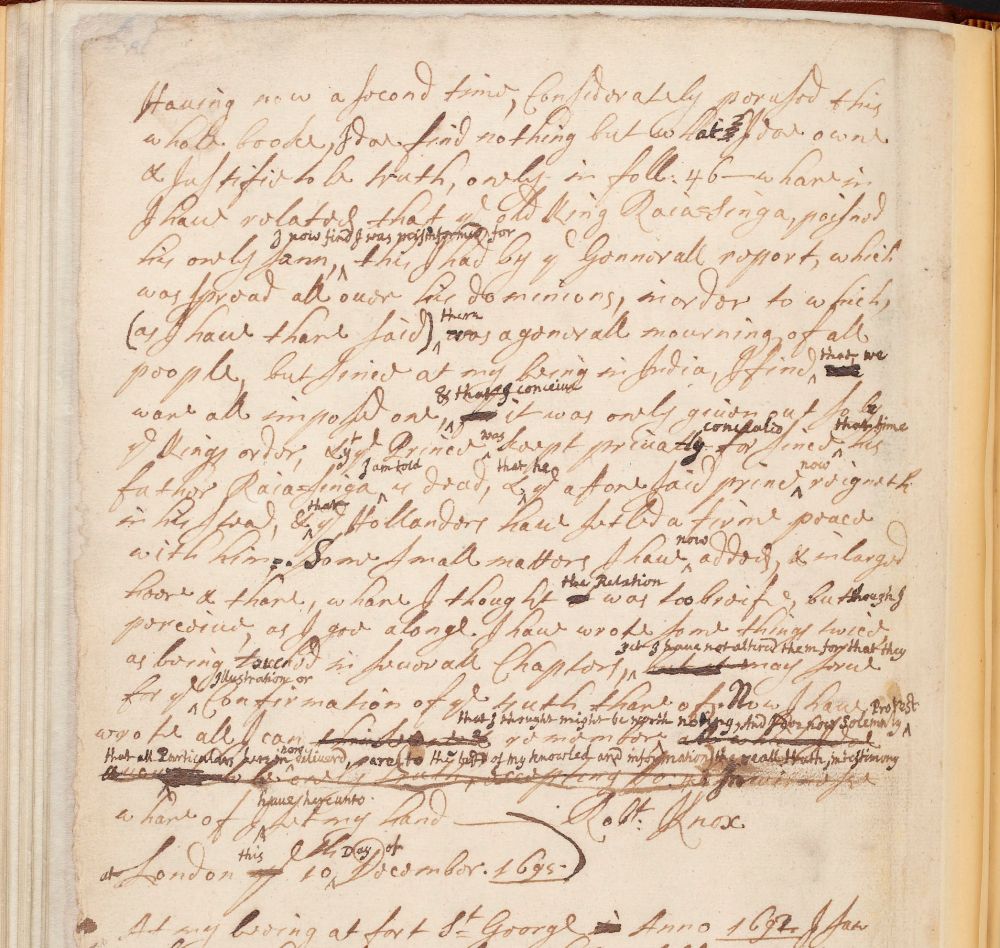 Having now a second time, Considerately perused this
whole booke, I doe find nothing but what I doe owne
& Justifie to be truth, onely in foll: 46 — whare in
I have related that ye old King Raia=Singa, poisned
I now find I was misinformed, for
his onely sonn, this I had by ye Gennerall report, which
was spread all over his dominions, in order to which,
there
(as I have thare said) was a generall mourning of all
people, but since at my being in India, I find, that we
& that I conceive
ware all imposed one, it was onely given out so by
concealed that time
ye Kings order, & yt ye Prince was keept privatly for since his
I am told that he now
father Raia=Singa is dead, & ye afore said prince reigneth
that
in his stead, & ye Hollanders have setled a firme peace
now
with him. Some small matters I have added, & inlarged
the Relation
heere & thare, whare I thought was too breife, but though I
perceive, as I goe alonge. I have wrote some things twice,
yet I have not altered them for that they
as being touched in severall Chapters, may serve
Illustration or
for ye Confirmation of ye truth thare of. Now I have
that I thought might be worth noting, And I doe now Solemnly Protest
wrote all I can remember
that all Particulars herein now delivered, are to the best of my knowledg and information the reall truth, in testimony
have hereunto
whare of I set my hand — Robt: Knox
this th Day of
at London 10 December. 1695
At my being at fort St George Anno I saw